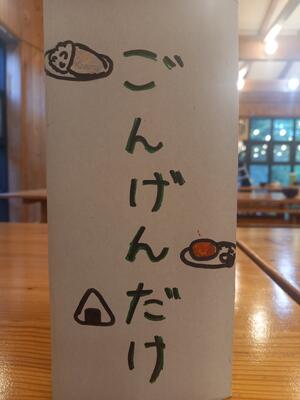 ごんげんだけ